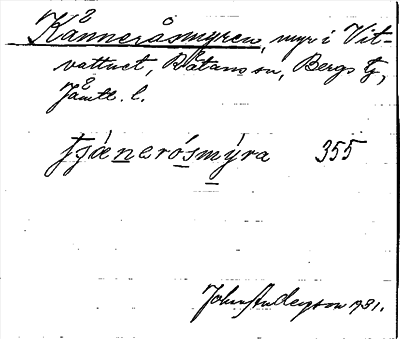 Kånneråsmyren, myr i Vit-
vattnet, Råtans sn, Bergs tg,
Jämtl. l.
tjænerósmýra 355
John Anderson 1931.